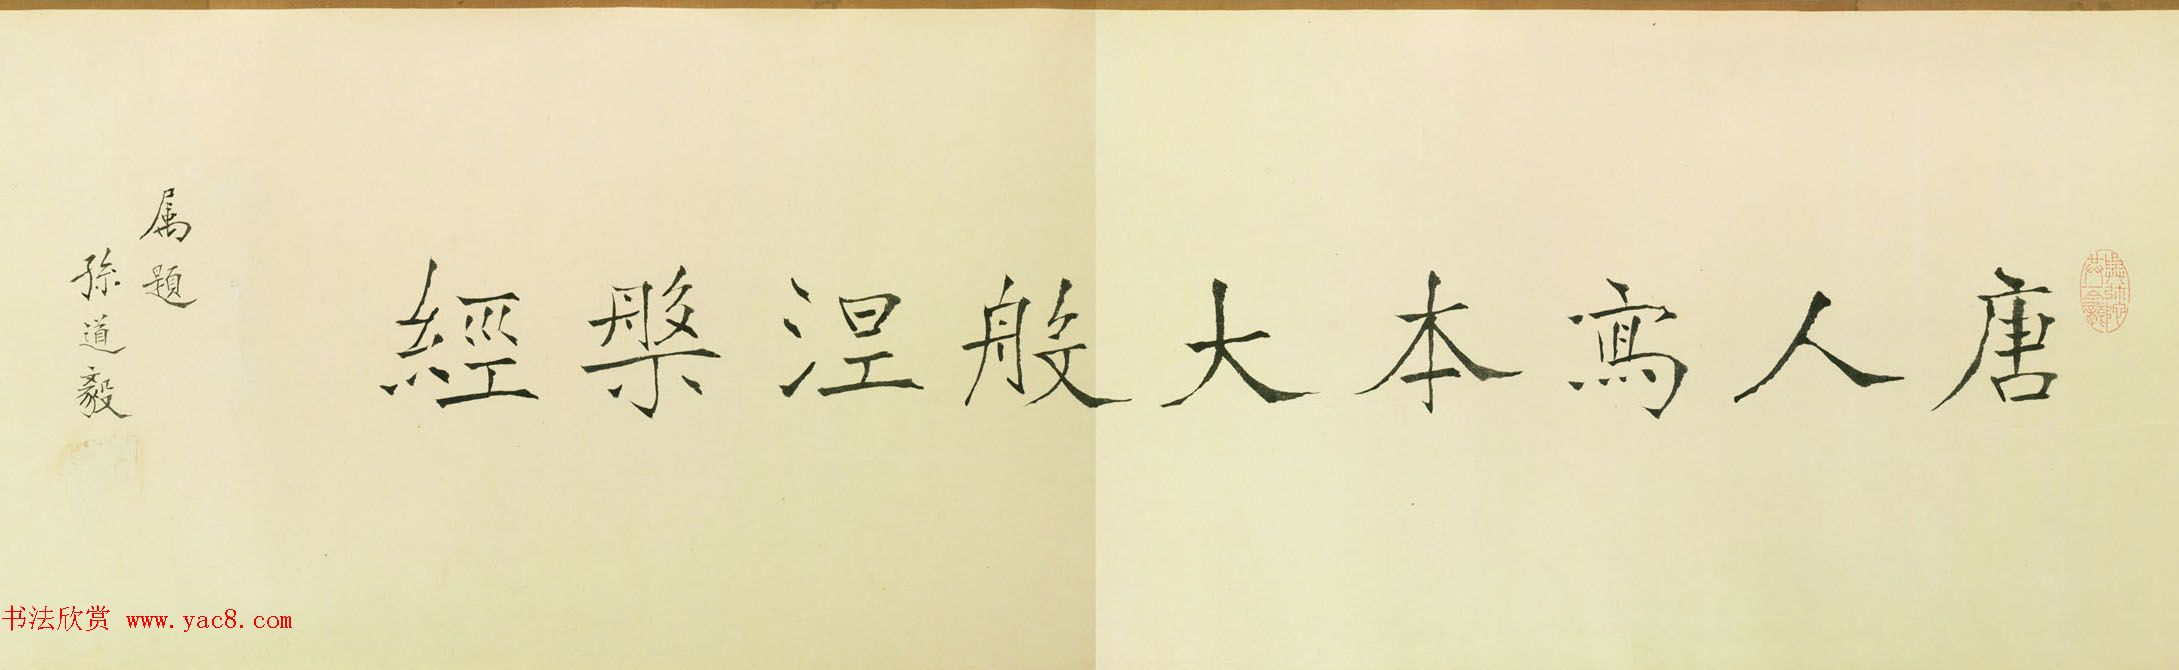 唐人寫本大般涅槃經
属題
孫道毅
书法欣赏 www.yac8.com